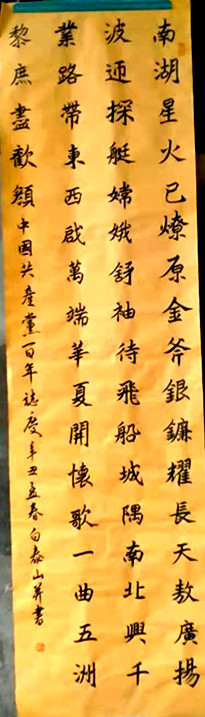 南湖星火已燎原金斧銀鐮耀長天敖廣揚
波迎探艇嫦娥舒袖待飛船城隅南北興千
業路帶東西啟萬端華夏開懷歌一曲五洲
黎庶盡歡顏中國共産黨一百年誌慶辛丑孟春白泰山并書